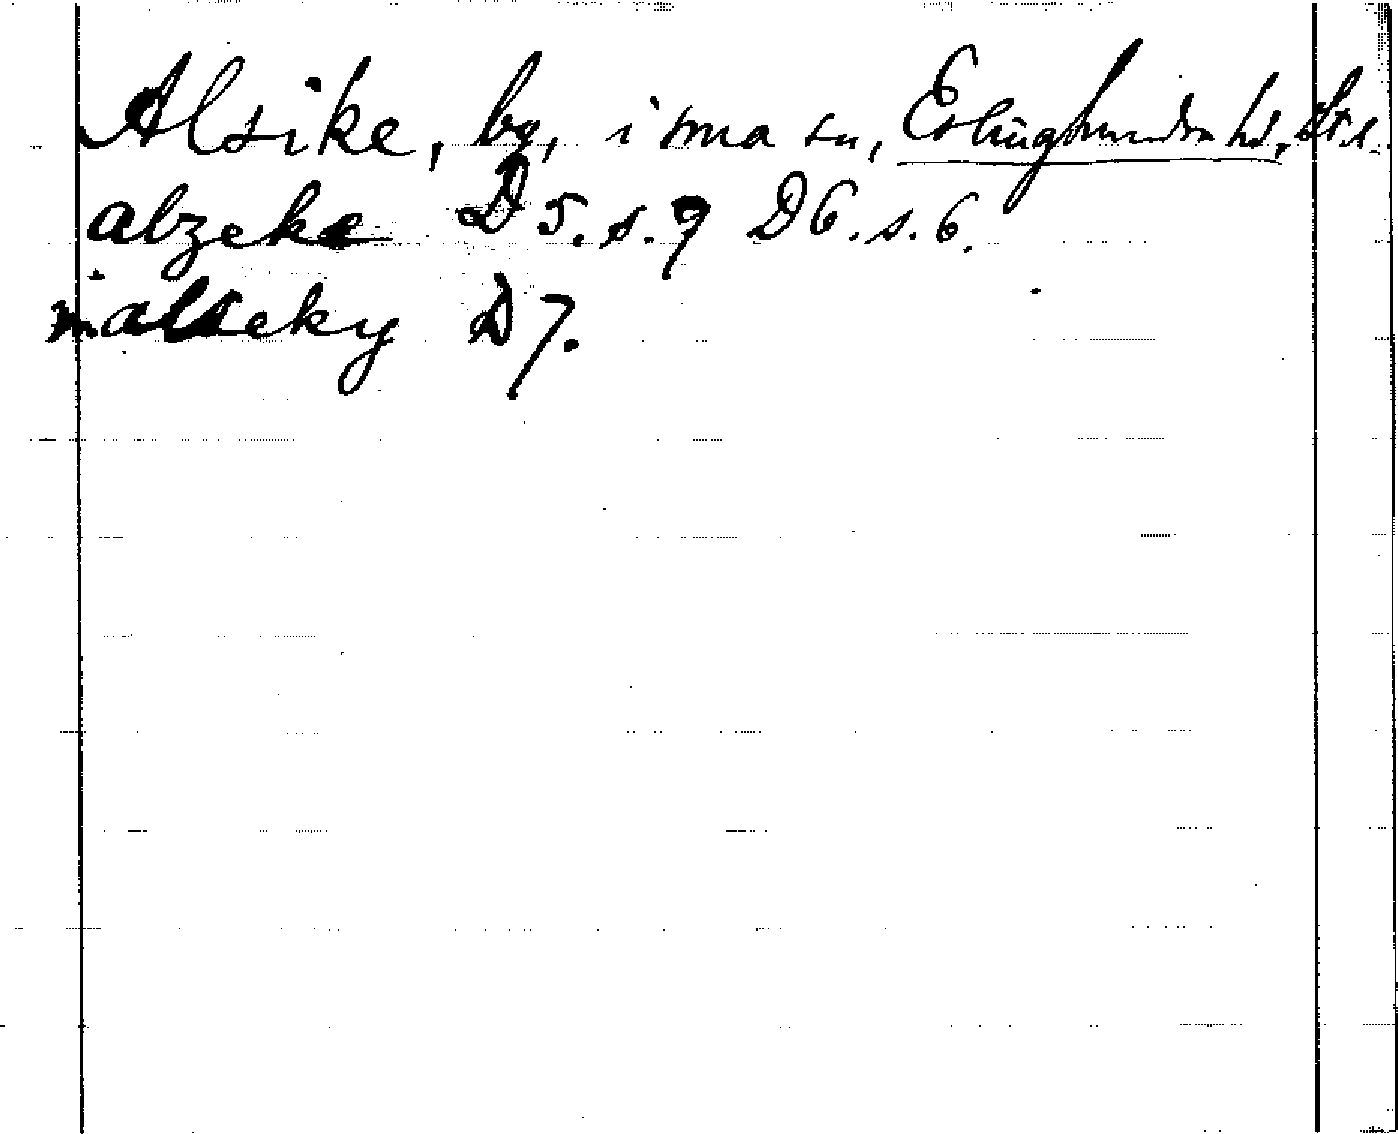 Alsike, by, i sma sn, Erlinghundra hd, St. l.
abzeke D 5. s. 9 D 6. s. 6.
malseky D 7.